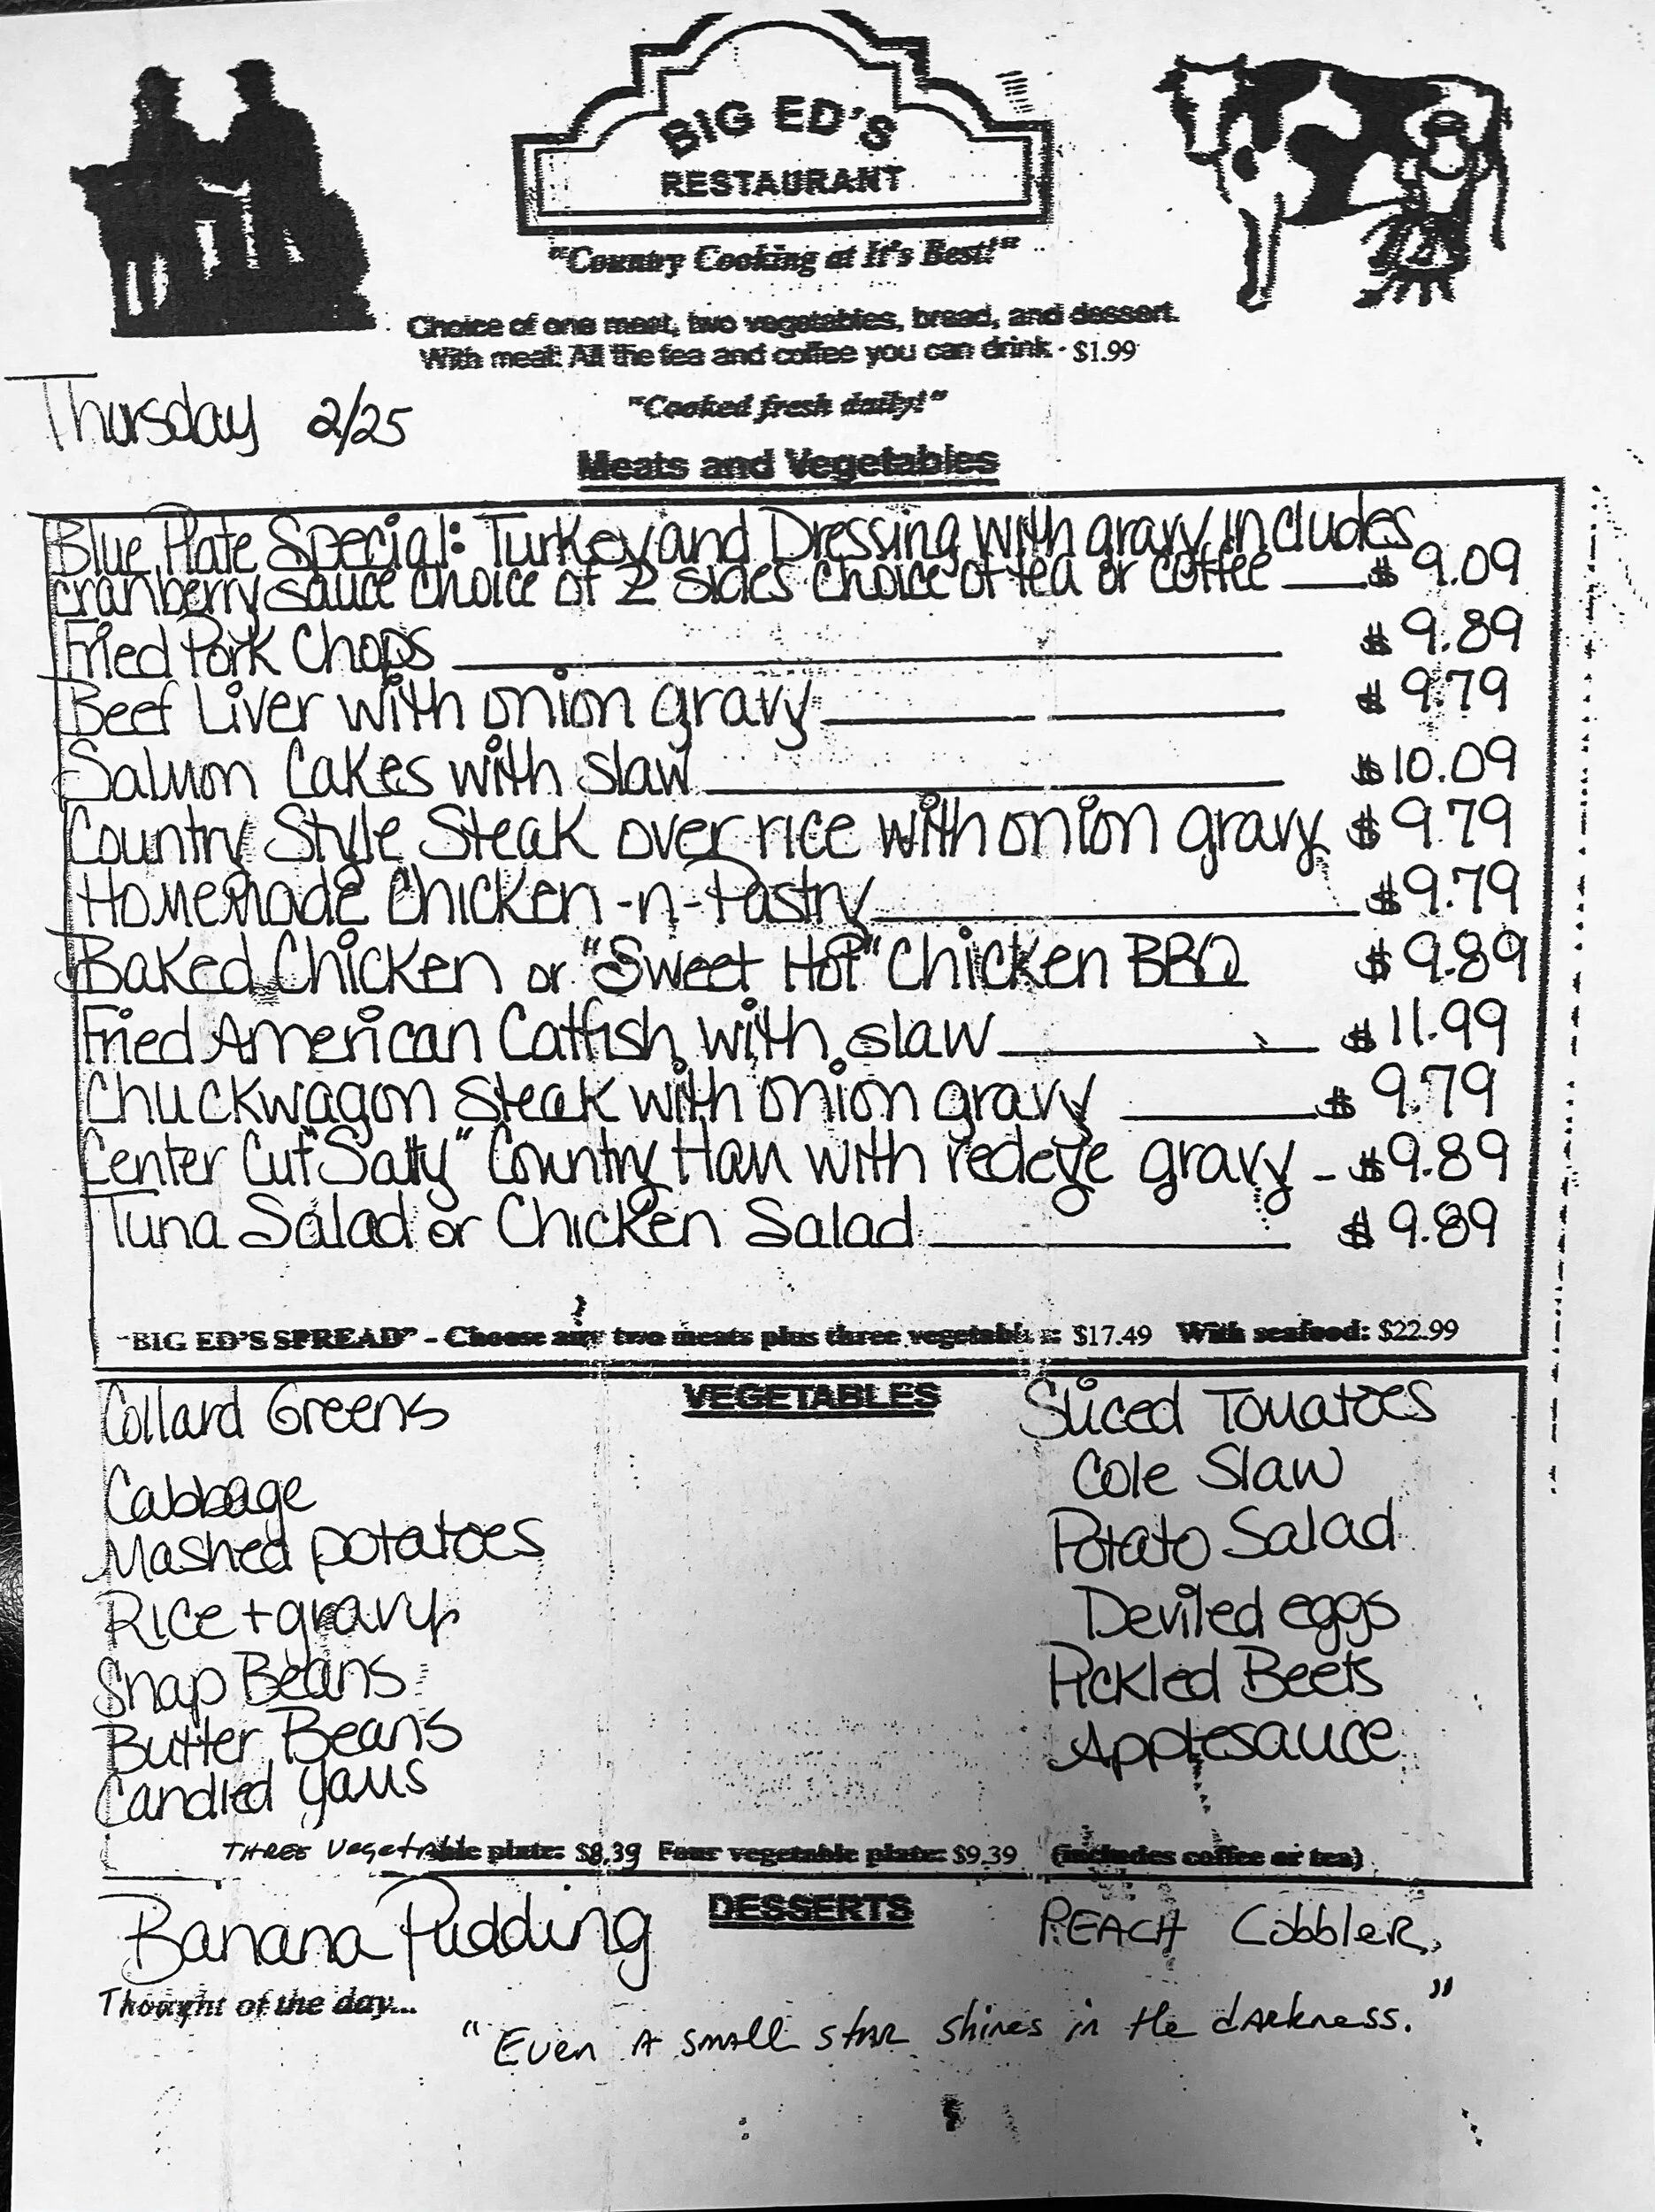 BIG ED'S
RESTAURANT
"Country Cooking at It's Best!"
Choice of one meat, two vegetables, bread, and dessert.
With meal: All the tea and coffee you can drink - $1.99
Thursday 2/25
"Cooked fresh daily!"
Meats and Vegetables
Blue Plate Special: Turkey and Dressing with gravy includes
cranberry sauce choice of 2 sides choice of tea or coffee $9.09
Fried Pork Chops $9.89
Beef Liver with onion gravy $9.79
Salmon Cakes with slaw $10.09
Country Style Steak over rice with onion gravy $9.79
Homemade Chicken-n-Pastry $9.79
Baked Chicken or "Sweet Hot" Chicken BBQ $9.89
Fried American Catfish with slaw $11.99
Chuckwagon Steak with onion gravy $9.79
Center Cut "Salty" Country Ham with redeye gravy - $9.89
Tuna Salad or Chicken Salad $9.89
"BIG ED'S SPREAD" - Choose any two meats plus three vegetables: $17.49 With seafood: $22.99
VEGETABLES
Collard Greens
Cabbage
Mashed potatoes
Rice + gravy
Snap Beans
Butter Beans
Candied yams
Sliced Tomatoes
Cole Slaw
Potato Salad
Deviled eggs
Pickled Beets
Applesauce
THREE Vegetable plate: $8.39 Four vegetable plate: $9.39 (includes coffee or tea)
DESSERTS
Banana Pudding
PEACH CobbleR
Thought of the day...
"Even A small star shines in the darkness."